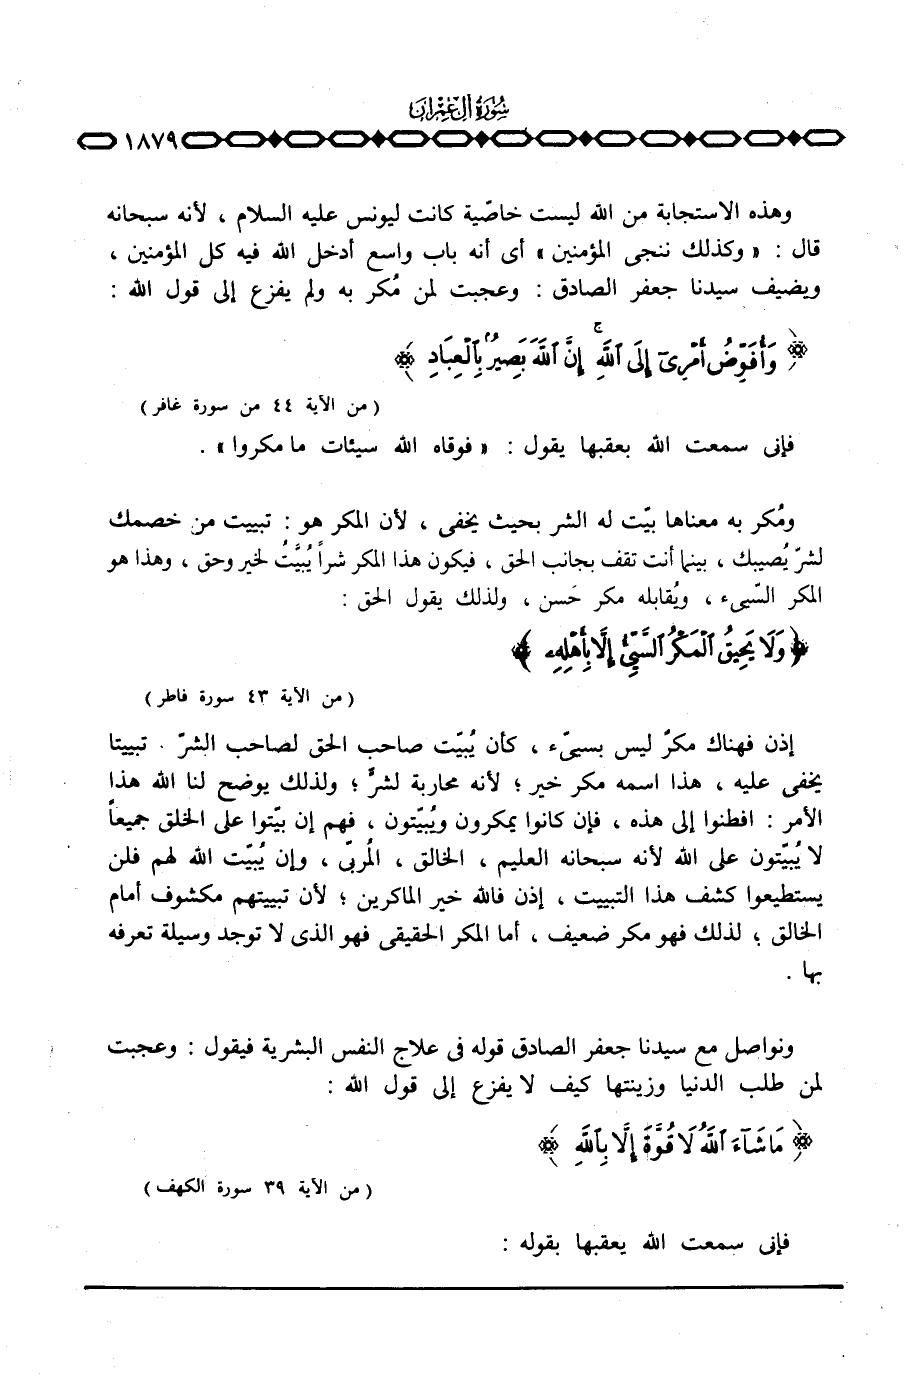 سُورَةُ آلِ عِمْرَان
١٨٧٩
وهذه الاستجابة من الله ليست خاصّية كانت ليونس عليه السلام ، لأنه سبحانه
قال : « وكذلك ننجى المؤمنين » أى أنه باب واسع أدخل الله فيه كل المؤمنين ،
ويضيف سيدنا جعفر الصادق : وعجبت لمن مُكر به ولم يفزع إلى قول الله :
﴿ وَأُفَوِّضُ أَمْرِىٓ إِلَى ٱللَّهِ ۚ إِنَّ ٱللَّهَ بَصِيرٌۢ بِٱلْعِبَادِ ﴾
( من الآية ٤٤ من سورة غافر )
فإنى سمعت الله بعقبها يقول : « فوقاه الله سيئات ما مكروا » .
ومُكر به معناها بيّت له الشر بحيث يخفى ، لأن المكر هو : تبييت من خصمك
لشرّ يُصيبك ، بينما أنت تقف بجانب الحق ، فيكون هذا المكر شراً يُبيَّتُ لخير وحق ، وهذا هو
المكر السّيىء ، ويُقابله مكر حَسن ، ولذلك يقول الحق :
﴿ وَلَا يَحِيقُ ٱلْمَكْرُ ٱلسَّيِّئُ إِلَّا بِأَهْلِهِۦ ﴾
( من الآية ٤٣ سورة فاطر )
إذن فهناك مكرٌ ليس بسيىّء ، كأن يُبيّت صاحب الحق لصاحب الشرّ . تبييتا
يخفى عليه ، هذا اسمه مكر خير ؛ لأنه محاربة لشرٍّ ؛ ولذلك يوضح لنا الله هذا
الأمر : افطنوا إلى هذه ، فإن كانوا يمكرون ويُبيّتون ، فهم إن بيّتوا على الخلق جميعاً
لا يُبيّتون على الله لأنه سبحانه العليم ، الخالق ، المُربّى ، وإن يُبيّت الله لهم فلن
يستطيعوا كشف هذا التبييت ، إذن فالله خير الماكرين ؛ لأن تبييتهم مكشوف أمام
الخالق ؛ لذلك فهو مكر ضعيف ، أما المكر الحقيقى فهو الذى لا توجد وسيلة تعرفه
بها .
ونواصل مع سيدنا جعفر الصادق قوله فى علاج النفس البشرية فيقول : وعجبت
لمن طلب الدنيا وزينتها كيف لا يفزع إلى قول الله :
﴿ مَا شَآءَ ٱللَّهُ لَا قُوَّةَ إِلَّا بِٱللَّهِ ﴾
( من الآية ٣٩ سورة الكهف )
فإنى سمعت الله يعقبها بقوله :